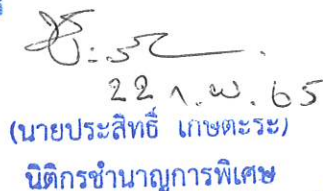 22 ก.พ. 65
(นายประสิทธิ์ เกษตะระ)
นิติกรชำนาญการพิเศษ